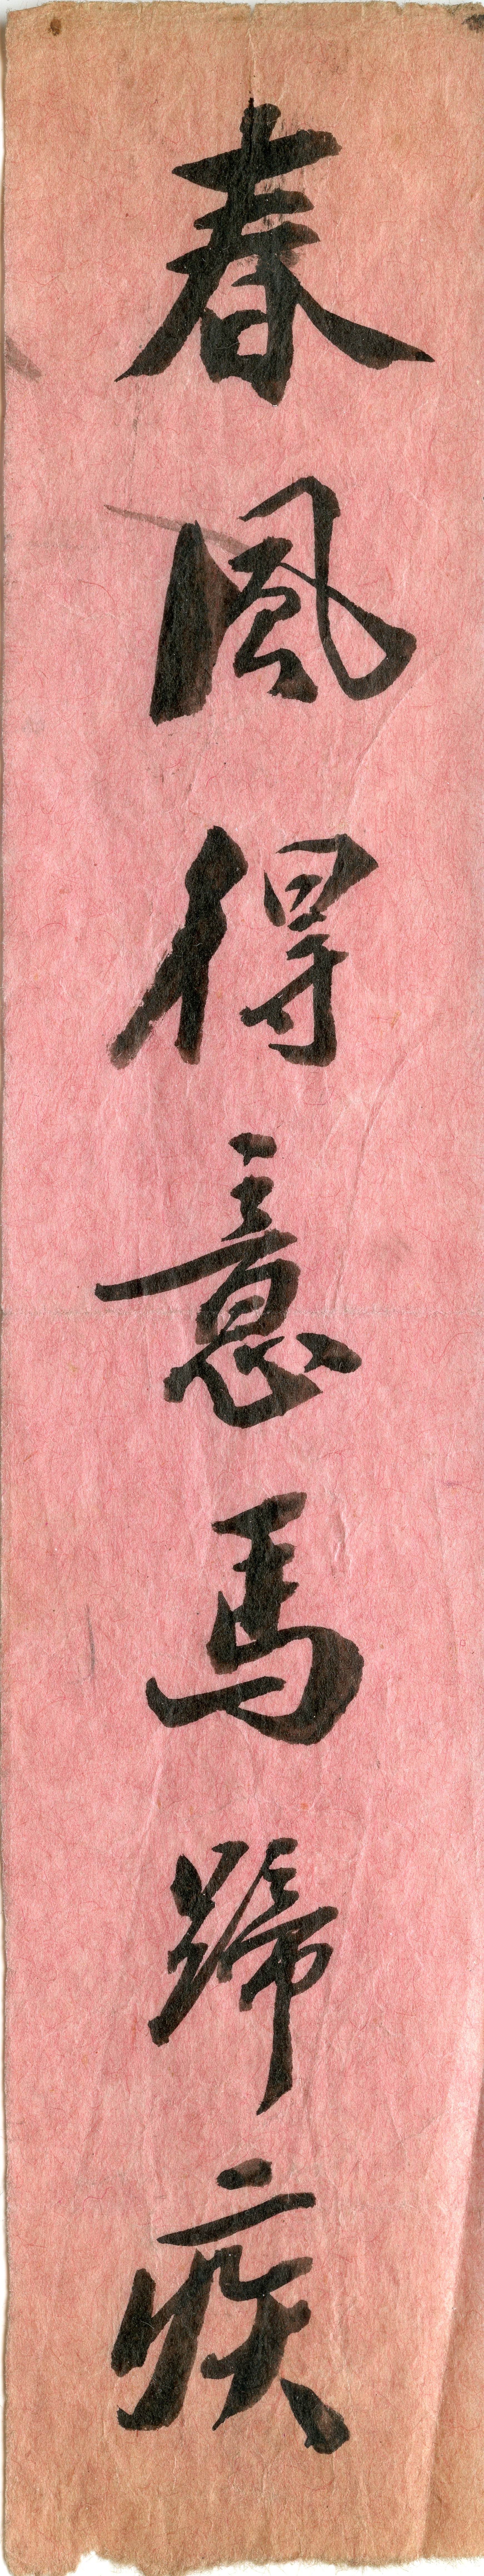 春風得意馬蹄疾